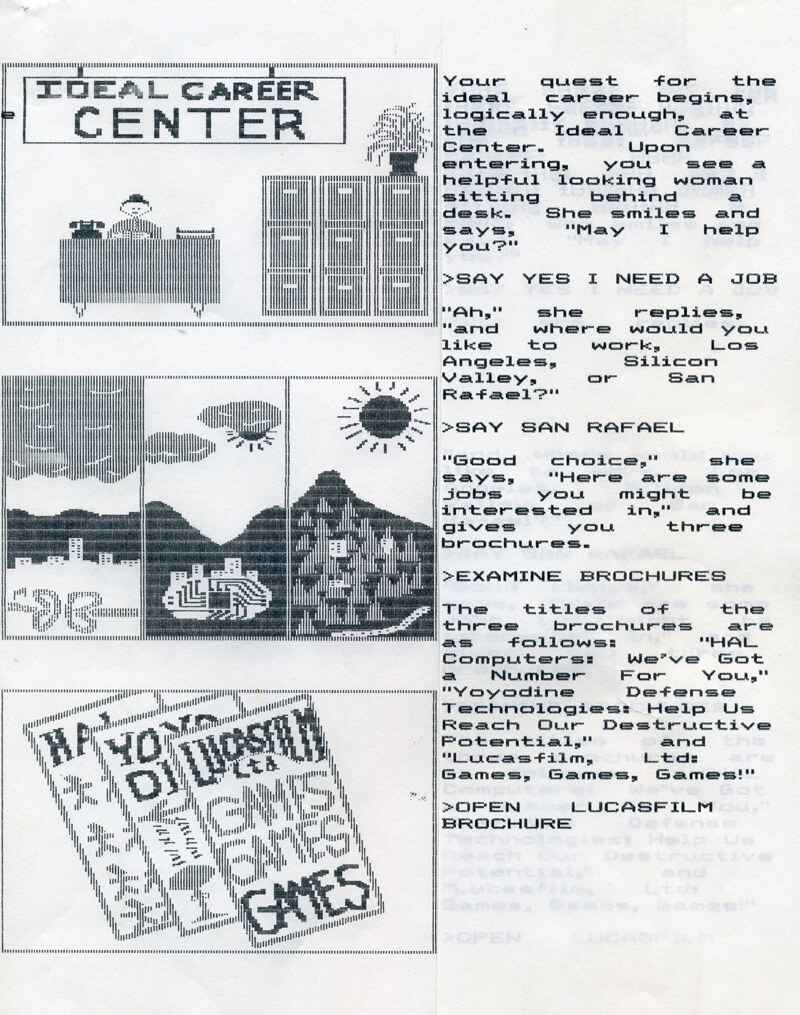 IDEAL CAREER
CENTER
Your quest for the
ideal career begins,
logically enough, at
the Ideal Career
Center. Upon
entering, you see a
helpful looking woman
sitting behind a
desk. She smiles and
says, "May I help
you?"
>SAY YES I NEED A JOB
"Ah," she replies,
"and where would you
like to work, Los
Angeles, Silicon
Valley, or San
Rafael?"
>SAY SAN RAFAEL
"Good choice," she
says, "Here are some
jobs you might be
interested in," and
gives you three
brochures.
>EXAMINE BROCHURES
The titles of the
three brochures are
as follows: "HAL
Computers: We've Got
a Number For You,"
"Yoyodine Defense
Technologies: Help Us
Reach Our Destructive
Potential," and
"Lucasfilm, Ltd:
Games, Games, Games!"
>OPEN LUCASFILM
BROCHURE
HAL
YOYO
DI
LUCASFILM
LTD
GAMES
GAMES
GAMES